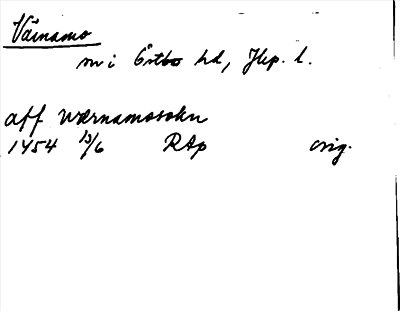 Värnamo
m i Östbo hd, Jkp. l.
aff wærnamosokn
1454 13/6 RAp orig.